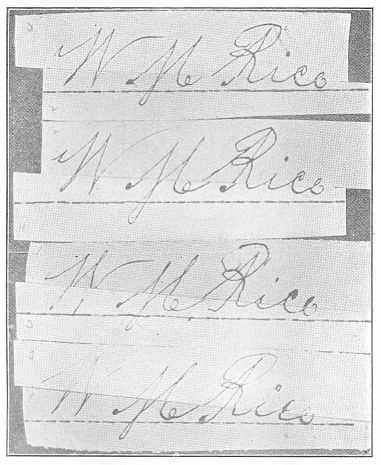 W M Rice
W M Rice
W M Rice
W M Rice